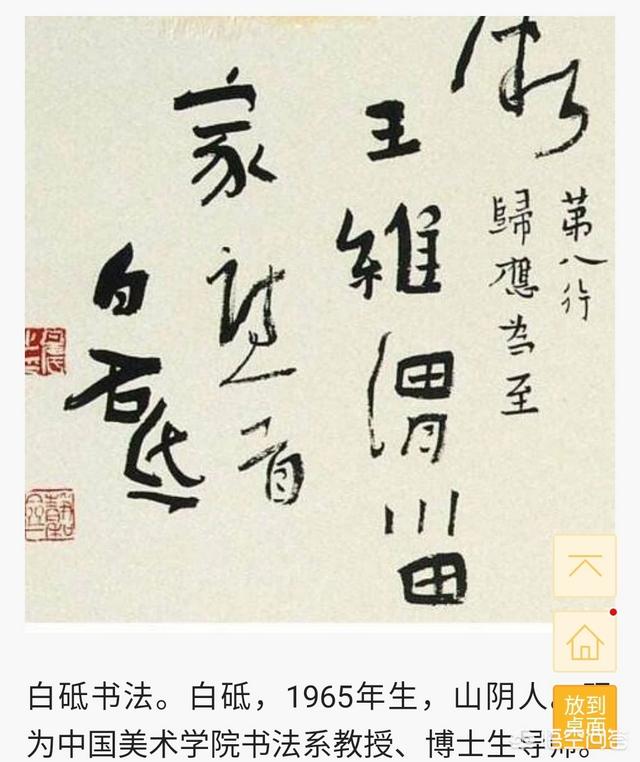 第八行
歸應為至
王維渭川田
家詩一首
白砥
白砥书法。白砥，1965年生，山阴人。现
为中国美术学院书法系教授、博士生导师。
放到
桌面
悟空问答